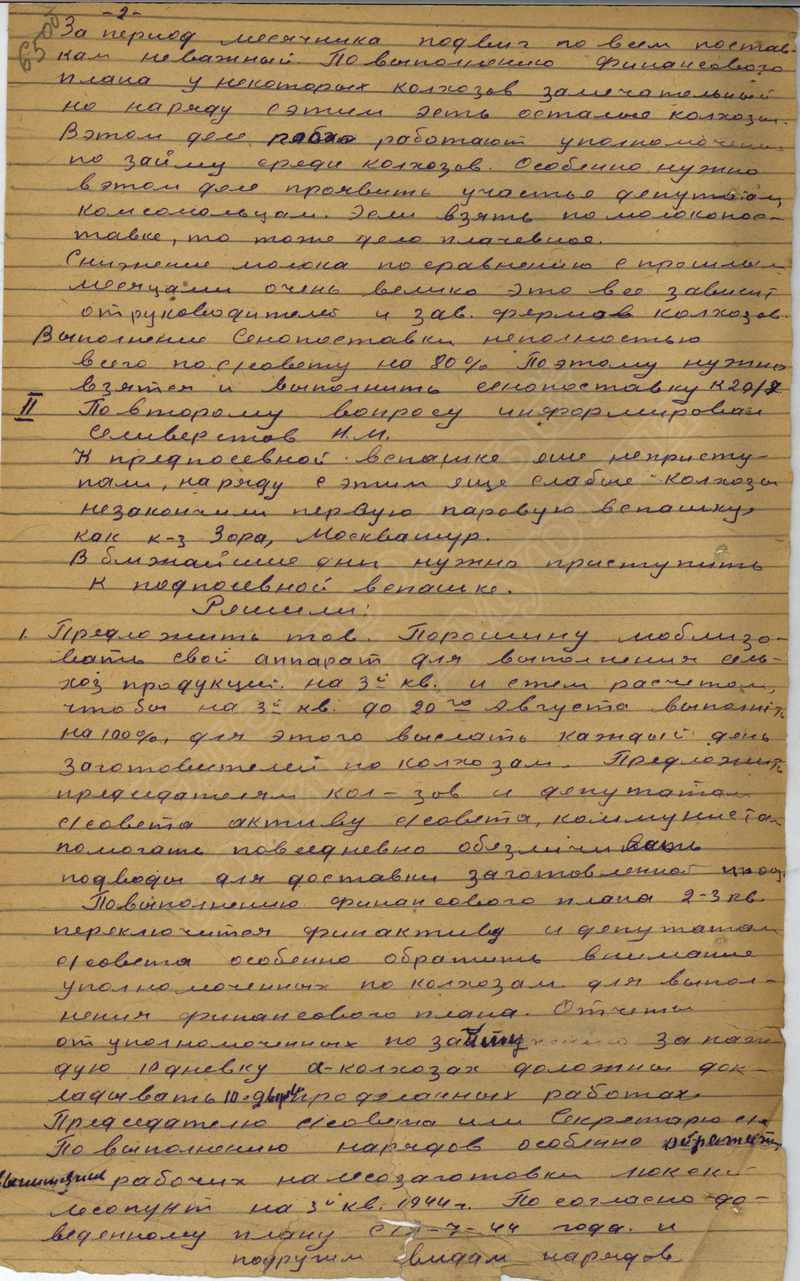 -2-
За период месячника подвиг по всем постав-
кам неважный. Повыполнению финансового
плана у некоторых колхозов замечательный
но наряду с этим эсть осталые колхозы.
Вэтом деле работают уполномочены
по займу среди колхозов. Особенно нужно
вэтом деле проявить участье депутатам
комсомольцам. Эсли взять помолокопос-
тавке, то тоже дело плачевное.
Снижение молока посравнению с прошлым
месяцами очень велико это все зависит
отруководителей и зав. фермов колхозов.
Выполнение Сенопоставки неполностью
всего по с/совету на 80% Поэтому нужно
взятся и выполнить сенопоставку к 20/
II Повторому вопросу информировал
Селиверстов Н.М.
К предпосевной вспашке еше непристу-
пали, наряду с этим еще слабые колхозы
незакончили первую паровую вспашку,
как к-з Зора, Москвашур.
В ближайшие дни нужно приступить
к подпосевной вспашке.
Решили:
1. Предложить тов. Порошину моблизо-
вать свой аппарат для выполнения сель-
хоз продукций. на 3й кв. и стем расчетом,
чтобы на 3й кв. до 20го Августа выполнить
на 100%, для этого выслать каждый день
заготовителей по колхозам. Предложить
председателям кол-зов и депутатам
с/совета активу с/совета, коммуниста
помогать повседневно
подводы для доставки заготовленной
Повыполнению финансового плана 2-3 кв.
переключится финактиву и депутатам
с/совета особенно обратить внимание
уполномоченных по колхозам для выпол-
нения финансового плана. Отчеты
от уполномоченных по займу за каж-
дую 10 дневку в колхозах должны док-
ладывать проделанных работах
Председателю с/совета или Секретарю
Повыполнению нарядов особенно обратить
внимание рабочих налесозаготовки
лесопункт на 3й кв. 1944 г. По согласно до-
веденному плану с -7-44 года. и
видам нарядов